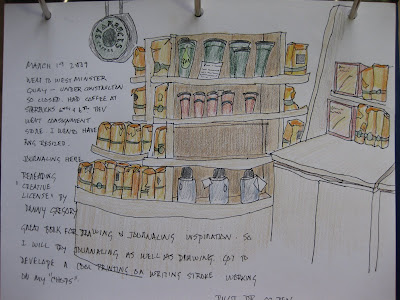 STARBUCKS COFFEE
MARCH 1ST 2009
WENT TO WESTMINSTER
QUAY - UNDER CONSTRUCTION
SO CLOSED. HAD COFFEE AT
STARBUCKS 6TH & 6TH THEN
WENT CONSIGNMENT
STORE I WOULD HAVE
RING RESIZED.
JOURNALING HERE
REREADING
"CREATIVE
LICENSE" BY
DANNY GREGORY
GREAT BOOK FOR DRAWING N JOURNALING INSPIRATION - SO
I WILL TRY JOURNALING AS WELL AS DRAWING. GOT TO
DEVELOPE A COOL PRINTING OR WRITING STROKE WORKING
ON MY "CHOPS".